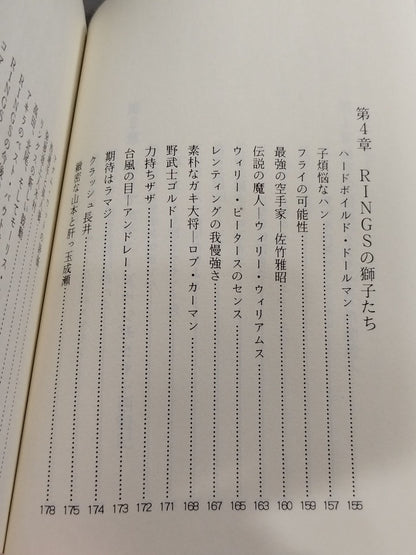 第4章　RINGSの獅子たち
ハードボイルド・ドールマン……155
子煩悩なハン……157
フライの可能性……159
最強の空手家―佐竹雅昭……160
伝説の魔人―ウィリー・ウィリアムス……163
ウィリー・ピータースのセンス……165
レンティングの我慢強さ……167
素朴なガキ大将―ロブ・カーマン……168
野武士ゴルドー……171
力持ちザザ……172
台風の目―アンドレー……173
期待はラマジ……174
クラッシュ長井……175
緻密な山本と肝っ玉成瀬……178